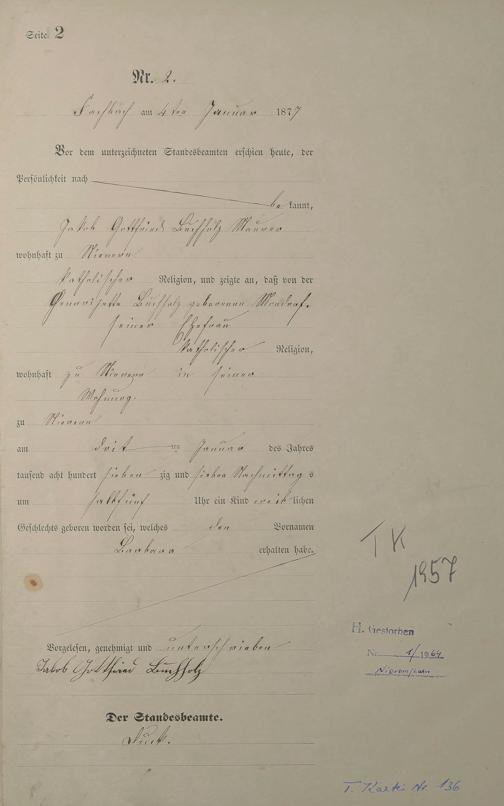 Seite 2
Nr. 2.
Fachbach am 4ten Januar 1877
Vor dem unterzeichneten Standesbeamten erschien heute, der
Persönlichkeit nach
be kannt,
Jakob Gottfried Buchholz Maurer
wohnhaft zu Nievern
katholischer Religion, und zeigte an, daß von der
Buchholz geborenen
seiner Ehefrau
katholischer Religion,
wohnhaft zu Nievern in seiner
Wohnung
zu Nievern
am dritten Januar des Jahres
tausend acht hundert sieben zig und sieben Nachmittag s
um halbfünf Uhr ein Kind weib lichen
Geschlechts geboren worden sei, welches den Vornamen
Barbara erhalten habe.
Vorgelesen, genehmigt und unterschrieben
Jakob Gottfried Buchholz
Der Standesbeamte.
TK
1957
H. Gestorben
Nr. 1/1964
T. Kartei Nr. 136